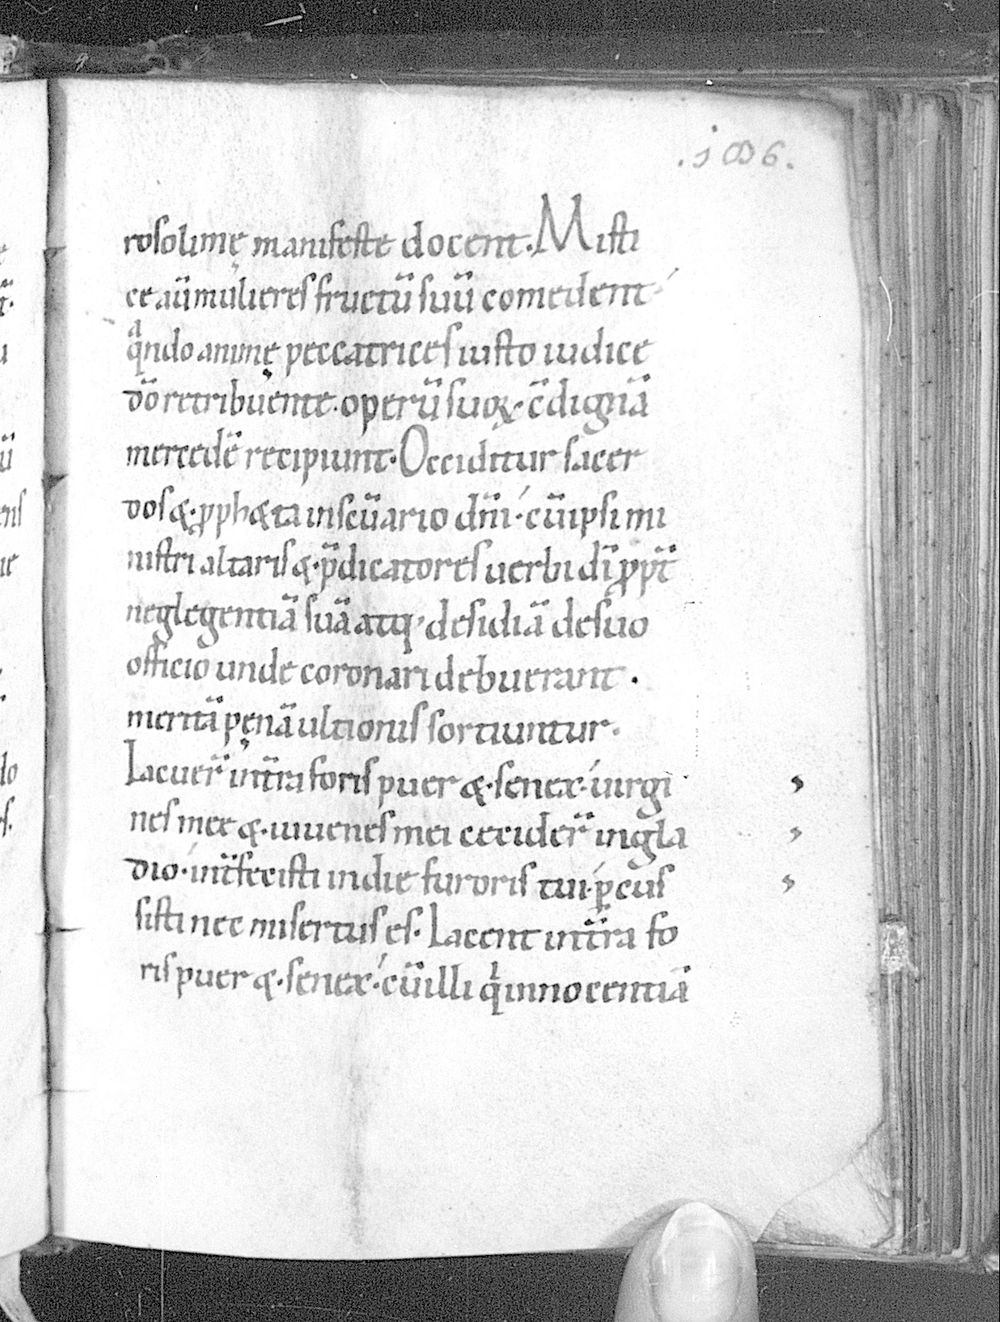 .1036.
rosolimę manifeste docent. Misti
ce aū mulieres fructū suū comedent
qͣndo animę peccatrices iusto iudice
dō retribuente. operū suoꝝ. c̄dignā
mercedē recipiunt. Occiditur sacer
dos &. ꝓph&a in scūario dn̄i. cū ipsi mi
nistri altaris &. p̄dicatores uerbi dī ꝓpt̄
neglegentiā suā atq; desidiā de suo
officio unde coronari debuerant.
meritā pęnā ultionis sortiuntur.
Iacuer̄ in t̄ra foris puer &. senex. uirgi
nes meę &. iuuenes mei cecider̄ in gla
dio. int̄fecisti in die furoris tui. ꝑcus
sisti nec misertus es. Iacent in t̄ra fo
ris puer &. senex. cū illi qͥ innocentiā